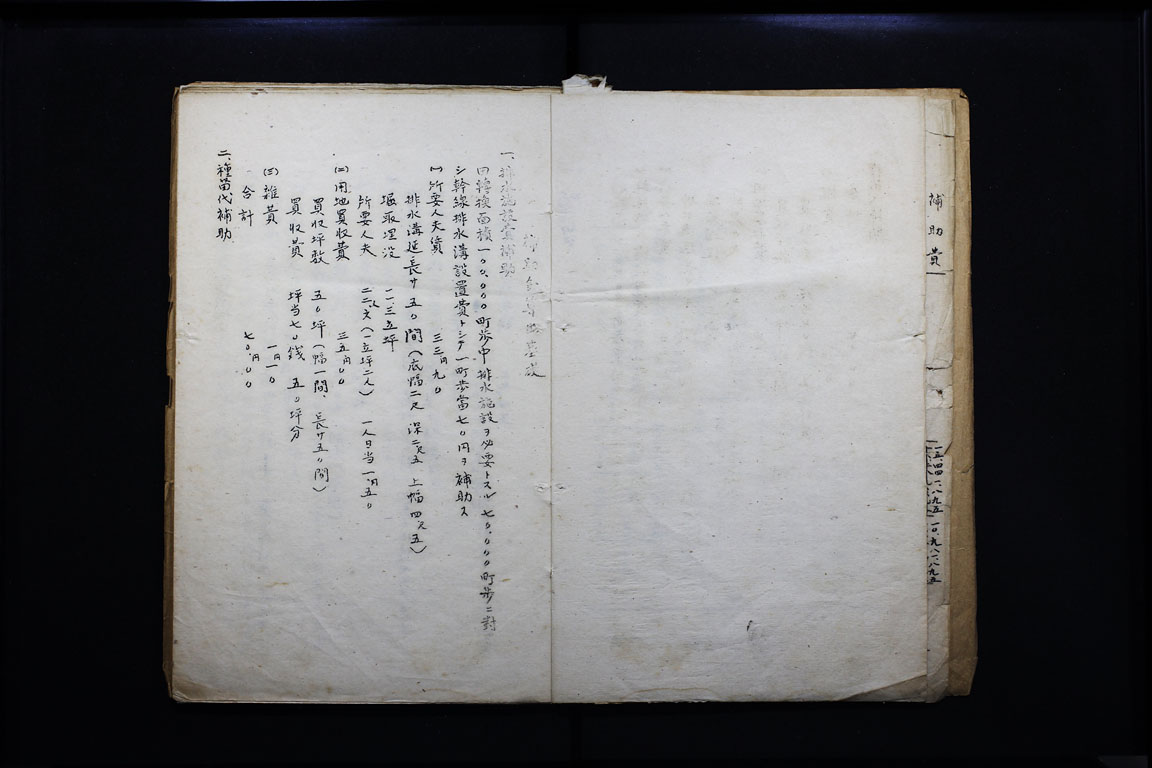 補助費
一五、四四一、八九五
一〇、九八一、八九五
補助金算出基礎
一、排水施設費補助
田轉換面積一〇〇、〇〇〇町歩中排水施設ヲ必要トスル七〇、〇〇〇町歩ニ對
シ幹線排水溝設置費トシテ一町歩當七〇円ヲ補助ス
(一)所要人夫賃 三三円九〇
排水溝延長サ 五〇間(底幅二尺 深二尺五 上幅四尺五)
堀取埋没 一一、三立坪
所要人夫 二二、六人(一立坪二人) 一人日当一円五〇
(二)用地買収費 三五円〇〇
買収坪数 五〇坪(幅一間、長サ五〇間)
買収費 坪当七〇銭 五〇坪分
(三)雑費 一円一〇
合計 七〇円〇〇
二、種苗代補助